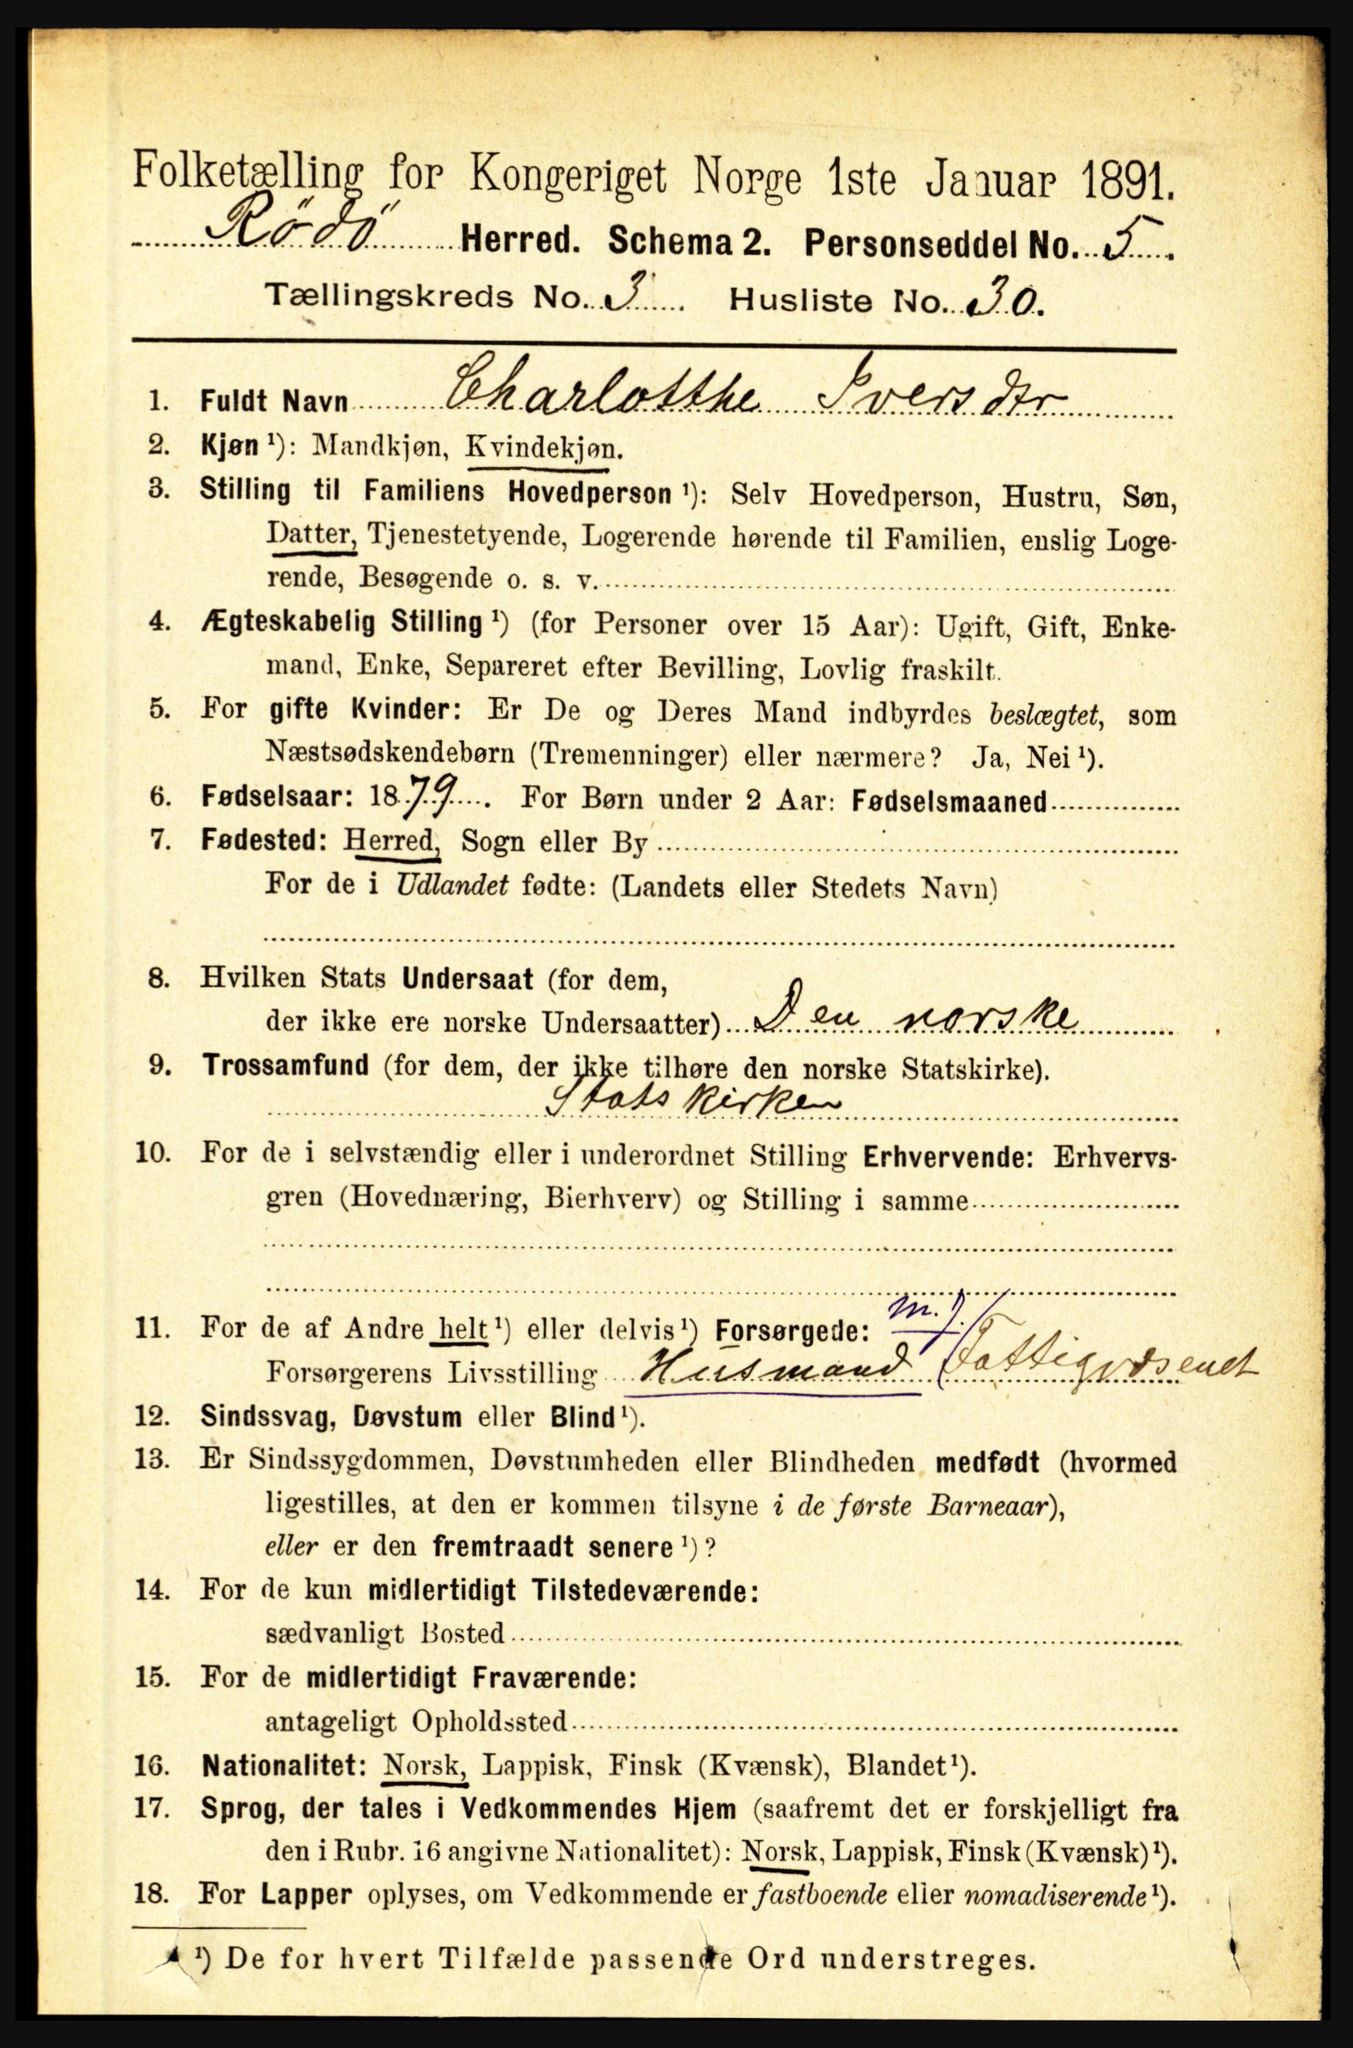 Folketælling for Kongeriget Norge 1ste Januar 1891.
Rödö Herred. Schema 2. Personseddel No. 5.
Tællingskreds No. 3. Husliste No. 30.
1. Fuldt Navn Charlotthe Iversdtr
2. Kjøn ¹): Mandkjøn, Kvindekjøn.
3. Stilling til Familiens Hovedperson ¹): Selv Hovedperson, Hustru, Søn,
Datter, Tjenestetyende, Logerende hørende til Familien, enslig Loge-
rende, Besøgende o. s. v.
4. Ægteskabelig Stilling ¹) (for Personer over 15 Aar): Ugift, Gift, Enke-
mand, Enke, Separeret efter Bevilling, Lovlig fraskilt.
5. For gifte Kvinder: Er De og Deres Mand indbyrdes beslægtet, som
Næstsødskendebørn (Tremenninger) eller nærmere? Ja, Nei ¹).
6. Fødselsaar: 1879. For Børn under 2 Aar: Fødselsmaaned
7. Fødested: Herred, Sogn eller By
For de i Udlandet fødte: (Landets eller Stedets Navn)
8. Hvilken Stats Undersaat (for dem,
der ikke ere norske Undersaatter) Den norske
9. Trossamfund (for dem, der ikke tilhøre den norske Statskirke).
Statskirken
10. For de i selvstændig eller i underordnet Stilling Erhvervende: Erhvervs-
gren (Hovednæring, Bierhverv) og Stilling i samme
11. For de af Andre helt ¹) eller delvis ¹) Forsørgede: m.J.
Forsørgerens Livsstilling Husmand /Fattigvæsenet
12. Sindssvag, Døvstum eller Blind ¹).
13. Er Sindssygdommen, Døvstumheden eller Blindheden medfødt (hvormed
ligestilles, at den er kommen tilsyne i de første Barneaar),
eller er den fremtraadt senere ¹)?
14. For de kun midlertidigt Tilstedeværende:
sædvanligt Bosted
15. For de midlertidigt Fraværende:
antageligt Opholdssted
16. Nationalitet: Norsk, Lappisk, Finsk (Kvænsk), Blandet ¹).
17. Sprog, der tales i Vedkommendes Hjem (saafremt det er forskjelligt fra
den i Rubr. 16 angivne Nationalitet): Norsk, Lappisk, Finsk (Kvænsk) ¹).
18. For Lapper oplyses, om Vedkommende er fastboende eller nomadiserende ¹).
¹) De for hvert Tilfælde passende Ord understreges.